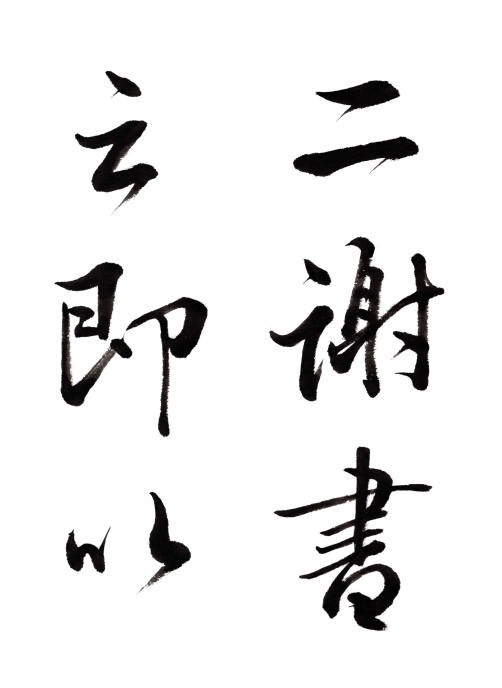 二謝書
云即以